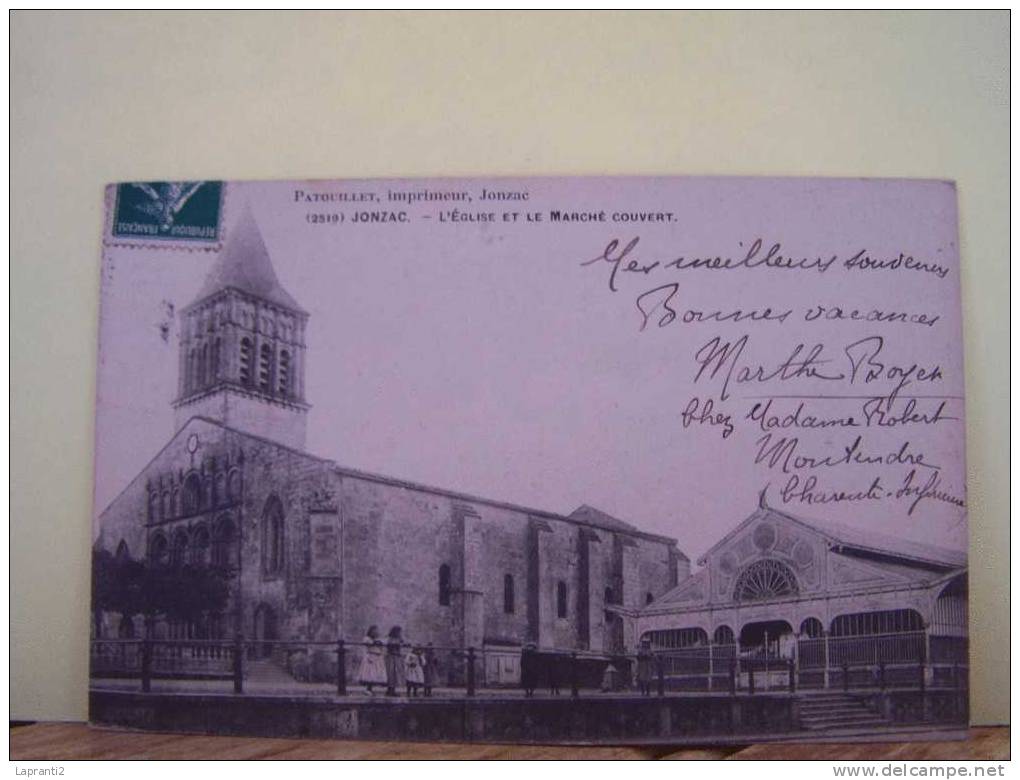 RÉPUBLIQUE FRANÇAISE
PATOUILLET, imprimeur, Jonzac
(2519) JONZAC. – L'ÉGLISE ET LE MARCHÉ COUVERT.
Mes meilleurs souvenirs
Bonnes vacances
Marthe Boyer
Chez Madame Robert
Montendre
Charente-Inférieure
Lapranti2
www.delcampe.net